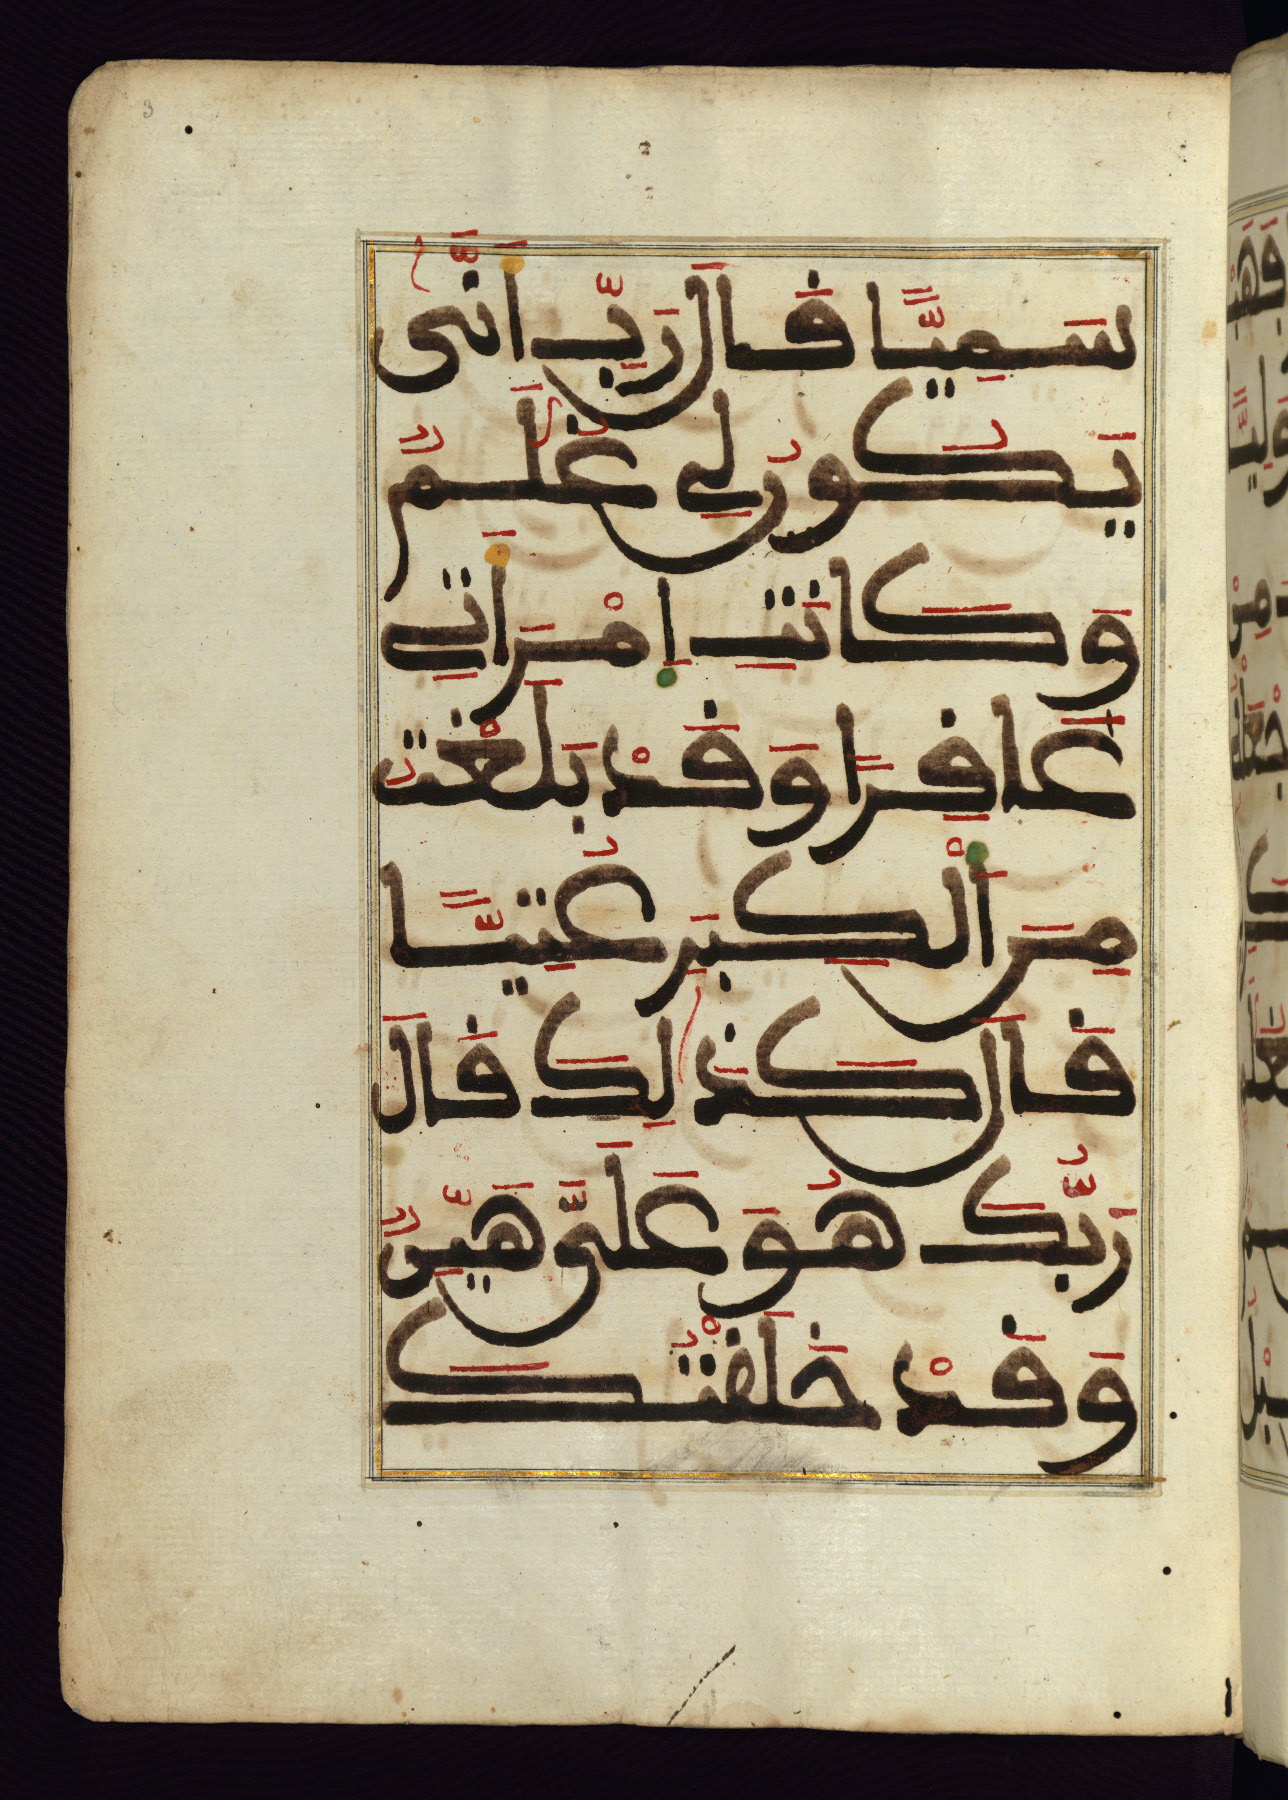 سَمِيًّا قَالَ رَبِّ أَنّٰى
يَكُونُ لِي غُلَٰمٌ
وَكَانَتِ اِمْرَأَتِي
عَاقِرًا وَقَدْ بَلَغْتُ
مِنَ اَلْكِبَرِ عُتِيًّا
قَالَ كَذَٰلِكَ قَالَ
رَبُّكَ هُوَ عَلَيَّ هَيِّنٌ
وَقَدْ خَلَقْتُكَ
3